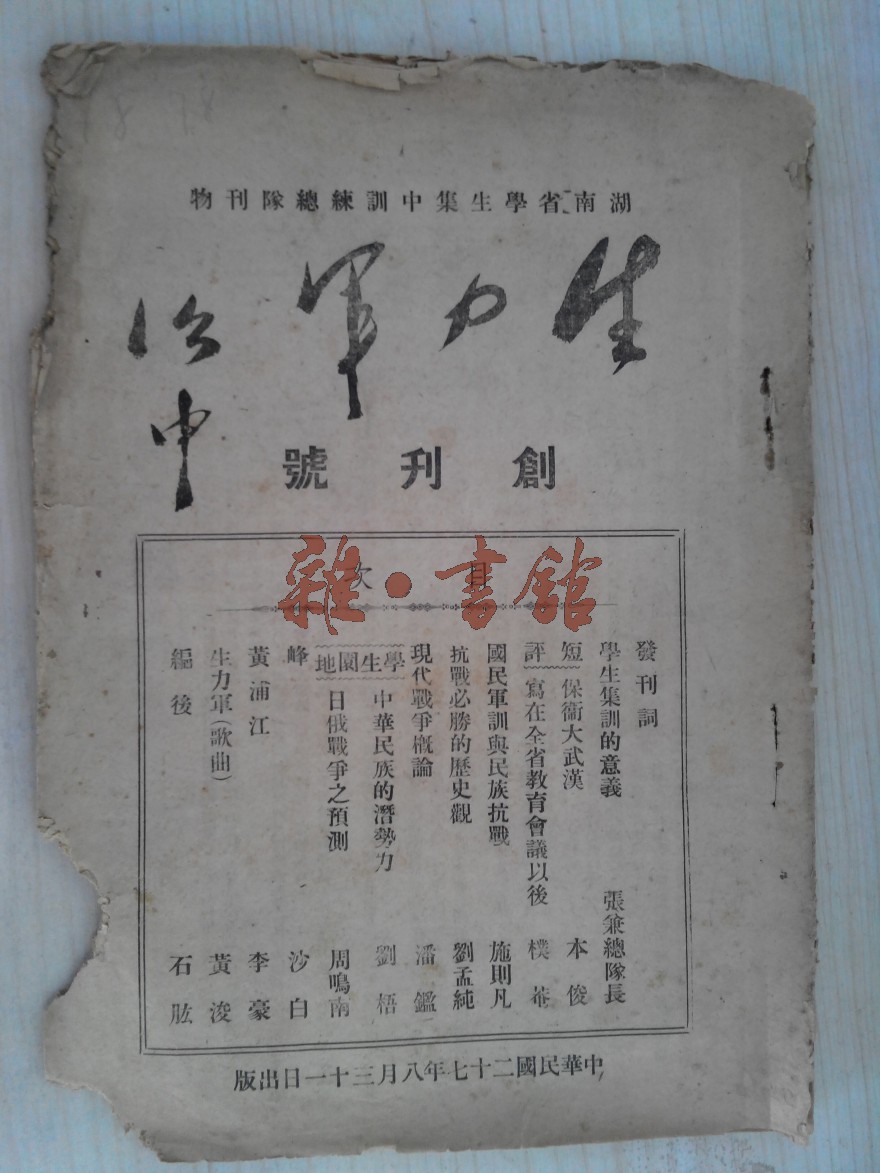 湖南省學生集中訓練總隊刊物
生力軍
治中
創刊號
雜·書館
目次
發刊詞
學生集訓的意義 張兼總隊長
短評
保衞大武漢 本俊
寫在全省教育會議以後 樸菴
國民軍訓與民族抗戰 施則凡
抗戰必勝的歷史觀 劉孟純
現代戰爭概論 潘鑑
學生園地
中華民族的潛勢力 劉梧
日俄戰爭之預測 周鳴南
峰 沙白
黃浦江 李豪
生力軍(歌曲) 黃浚
編後 石肱
中華民國二十七年八月三十一日出版